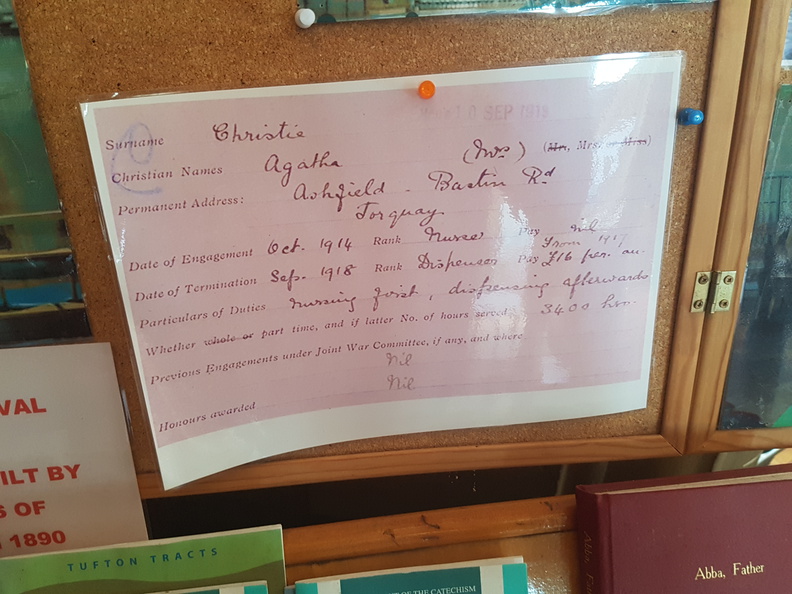 10 SEP 1919
Surname Christie
Christian Names Agatha (Mrs) (Mr, Mrs. or Miss)
Permanent Address: Ashfield - Barton Rd
Torquay
Date of Engagement Oct. 1914 Rank Nurse Pay nil
from 1917
Date of Termination Sep. 1918 Rank Dispenser Pay £16 per. an.
Particulars of Duties Nursing first, dispensing afterwards
Whether whole or part time, and if latter No. of hours served 3400 hrs.
Previous Engagements under Joint War Committee, if any, and where
nil
Nil
Honours awarded
VAL
ILT BY
S OF
1890
TUFTON TRACTS
OF THE CATECHISM
Abba, Father
Abba, Fa